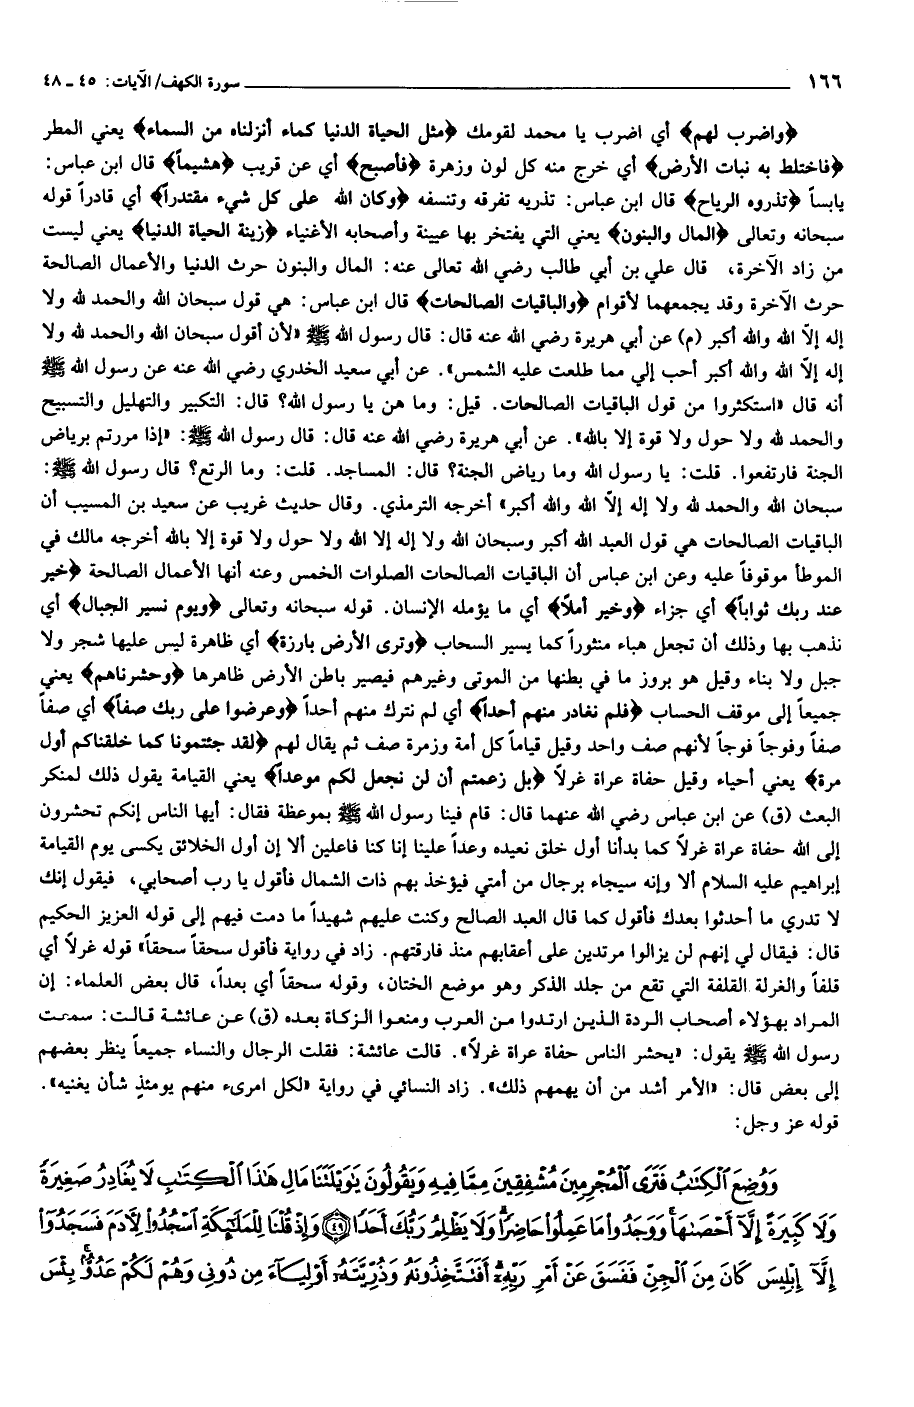 ١٦٦ سورة الكهف/ الآيات: ٤٥ ـ ٤٨
﴿واضرب لهم﴾ أي اضرب يا محمد لقومك ﴿مثل الحياة الدنيا كماء أنزلناه من السماء﴾ يعني المطر
﴿فاختلط به نبات الأرض﴾ أي خرج منه كل لون وزهرة ﴿فأصبح﴾ أي عن قريب ﴿هشيماً﴾ قال ابن عباس:
يابساً ﴿تذروه الرياح﴾ قال ابن عباس: تذريه تفرقه وتنسفه ﴿وكان الله على كل شيء مقتدراً﴾ أي قادراً قوله
سبحانه وتعالى ﴿المال والبنون﴾ يعني التي يفتخر بها عيينة وأصحابه الأغنياء ﴿زينة الحياة الدنيا﴾ يعني ليست
من زاد الآخرة، قال علي بن أبي طالب رضي الله تعالى عنه: المال والبنون حرث الدنيا والأعمال الصالحة
حرث الآخرة وقد يجمعهما لأقوام ﴿والباقيات الصالحات﴾ قال ابن عباس: هي قول سبحان الله والحمد لله ولا
إله إلاّ الله والله أكبر (م) عن أبي هريرة رضي الله عنه قال: قال رسول الله ﷺ «لأن أقول سبحان الله والحمد لله ولا
إله إلاّ الله والله أكبر أحب إلي مما طلعت عليه الشمس». عن أبي سعيد الخدري رضي الله عنه عن رسول الله ﷺ
أنه قال «استكثروا من قول الباقيات الصالحات. قيل: وما هن يا رسول الله؟ قال: التكبير والتهليل والتسبيح
والحمد لله ولا حول ولا قوة إلا بالله». عن أبي هريرة رضي الله عنه قال: قال رسول الله ﷺ: «إذا مررتم برياض
الجنة فارتفعوا. قلت: يا رسول الله وما رياض الجنة؟ قال: المساجد. قلت: وما الرتع؟ قال رسول الله ﷺ:
سبحان الله والحمد لله ولا إله إلاّ الله والله أكبر» أخرجه الترمذي. وقال حديث غريب عن سعيد بن المسيب أن
الباقيات الصالحات هي قول العبد الله أكبر وسبحان الله ولا إله إلا الله ولا حول ولا قوة إلا بالله أخرجه مالك في
الموطأ موقوفاً عليه وعن ابن عباس أن الباقيات الصالحات الصلوات الخمس وعنه أنها الأعمال الصالحة ﴿خير
عند ربك ثواباً﴾ أي جزاء ﴿وخير أملاً﴾ أي ما يؤمله الإنسان. قوله سبحانه وتعالى ﴿ويوم نسير الجبال﴾ أي
نذهب بها وذلك أن تجعل هباء منثوراً كما يسير السحاب ﴿وترى الأرض بارزة﴾ أي ظاهرة ليس عليها شجر ولا
جبل ولا بناء وقيل هو بروز ما في بطنها من الموتى وغيرهم فيصير باطن الأرض ظاهرها ﴿وحشرناهم﴾ يعني
جميعاً إلى موقف الحساب ﴿فلم نغادر منهم أحداً﴾ أي لم نترك منهم أحداً ﴿وعرضوا على ربك صفاً﴾ أي صفاً
صفاً وفوجاً فوجاً لأنهم صف واحد وقيل قياماً كل أمة وزمرة صف ثم يقال لهم ﴿لقد جئتمونا كما خلقناكم أول
مرة﴾ يعني أحياء وقيل حفاة عراة غرلاً ﴿بل زعمتم أن لن نجعل لكم موعداً﴾ يعني القيامة يقول ذلك لمنكر
البعث (ق) عن ابن عباس رضي الله عنهما قال: قام فينا رسول الله ﷺ بموعظة فقال: أيها الناس إنكم تحشرون
إلى الله حفاة عراة غرلاً كما بدأنا أول خلق نعيده وعداً علينا إنا كنا فاعلين ألا إن أول الخلائق يكسى يوم القيامة
إبراهيم عليه السلام ألا وإنه سيجاء برجال من أمتي فيؤخذ بهم ذات الشمال فأقول يا رب أصحابي، فيقول إنك
لا تدري ما أحدثوا بعدك فأقول كما قال العبد الصالح وكنت عليهم شهيداً ما دمت فيهم إلى قوله العزيز الحكيم
قال: فيقال لي إنهم لن يزالوا مرتدين على أعقابهم منذ فارقتهم. زاد في رواية فأقول سحقاً سحقاً» قوله غرلاً أي
قلفاً والغرلة القلفة التي تقع من جلد الذكر وهو موضع الختان، وقوله سحقاً أي بعداً، قال بعض العلماء: إن
المراد بهؤلاء أصحاب الردة الذين ارتدوا من العرب ومنعوا الزكاة بعده (ق) عن عائشة قالت: سمعت
رسول الله ﷺ يقول: «يحشر الناس حفاة عراة غرلاً». قالت عائشة: فقلت الرجال والنساء جميعاً ينظر بعضهم
إلى بعض قال: «الأمر أشد من أن يهمهم ذلك». زاد النسائي في رواية «لكل امرىء منهم يومئذٍ شأن يغنيه».
قوله عز وجل:
وَوُضِعَ ٱلْكِتَٰبُ فَتَرَى ٱلْمُجْرِمِينَ مُشْفِقِينَ مِمَّا فِيهِ وَيَقُولُونَ يَٰوَيْلَتَنَا مَالِ هَٰذَا ٱلْكِتَٰبِ لَا يُغَادِرُ صَغِيرَةً
وَلَا كَبِيرَةً إِلَّآ أَحْصَىٰهَا ۚ وَوَجَدُوا۟ مَا عَمِلُوا۟ حَاضِرًا ۗ وَلَا يَظْلِمُ رَبُّكَ أَحَدًا ﴿٤٩﴾ وَإِذْ قُلْنَا لِلْمَلَٰٓئِكَةِ ٱسْجُدُوا۟ لِءَادَمَ فَسَجَدُوٓا۟
إِلَّآ إِبْلِيسَ كَانَ مِنَ ٱلْجِنِّ فَفَسَقَ عَنْ أَمْرِ رَبِّهِۦٓ ۗ أَفَتَتَّخِذُونَهُۥ وَذُرِّيَّتَهُۥٓ أَوْلِيَآءَ مِن دُونِى وَهُمْ لَكُمْ عَدُوٌّۢ ۚ بِئْسَ